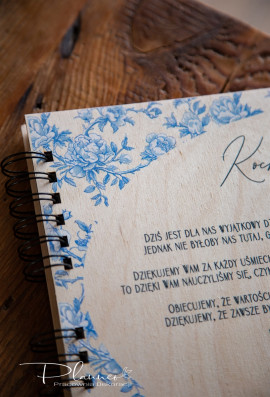 DZIŚ JEST DLA NAS WYJĄTKOWY
JEDNAK NIE BYŁOBY NAS TUTAJ, G
DZIĘKUJEMY WAM ZA KAŻDY UŚMIECH
TO DZIĘKI WAM NAUCZYLIŚMY SIĘ, CZY
OBIECUJEMY, ŻE WARTOŚC
DZIĘKUJEMY, ŻE ZAWSZE B
Planner